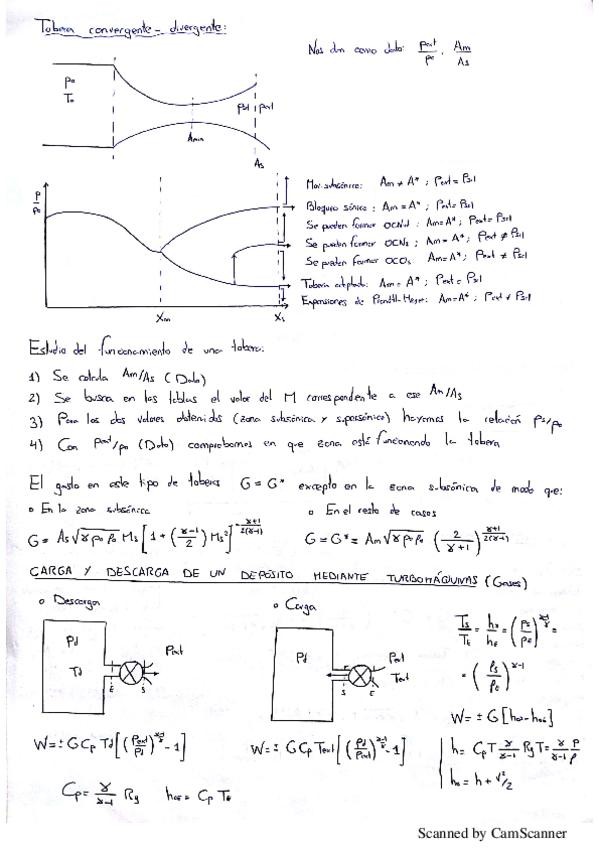 Tobera convergente - divergente:
Nos dan como dato: Pext/Po , Am/As
Po
To
Ps1 Pext
Amin
As
P/Po
Mov. subsónico: Am ≠ A* ; Pext = Ps1
Bloqueo sónico: Am = A* ; Pext = Ps1
Se pueden formar OCNd : Am = A* ; Pext = Ps1
Se pueden formar OCNs ; Am = A* ; Pext ≠ Ps1
Se pueden formar OCOs Am = A* ; Pext ≠ Ps1
Tobera adaptada: Am = A* ; Pext = Ps1
Expansiones de Prandtl-Meyer: Am = A* ; Pext ≠ Ps1
Xm
Xs
Estudio del funcionamiento de una tobera:
1) Se calcula Am/As (Dato)
2) Se busca en las tablas el valor del M correspondente a ese Am/As
3) Para los dos valores obtenidos (zona subsónica y supersónica) hayamos la relación Ps/Po
4) Con Pext/Po (Dato) comprobamos en que zona está funcionando la tobera
El gasto en este tipo de toberas G = G* excepto en la zona subsónica de modo que:
o En la zona subsónica
o En el resto de casos
G = As √(γ po ρo) Ms [1 + ((γ-1)/2) Ms²]^(-(γ+1)/(2(γ-1)))
G = G* = Am √(γ po ρo) (2/(γ+1))^((γ+1)/(2(γ-1)))
CARGA Y DESCARGA DE UN DEPÓSITO MEDIANTE TURBOMÁQUINAS (Gases)
o Descarga
o Carga
Pd
Td
Pext
E S
Pd
Pext
Text
S E
Ts/TE = hs/hE = (Ps/PE)^((γ-1)/γ) =
= (ρs/ρE)^(γ-1)
W = ± G [hos - hoe]
W = ± G Cp Td [(Pext/Pd)^((γ-1)/γ) - 1]
W = ± G Cp Text [(Pd/Pext)^((γ-1)/γ) - 1]
h = Cp T γ/(γ-1) Rg T = γ/(γ-1) P/ρ
ho = h + v²/2
Cp = γ/(γ-1) Rg
hoE = Cp To
Scanned by CamScanner